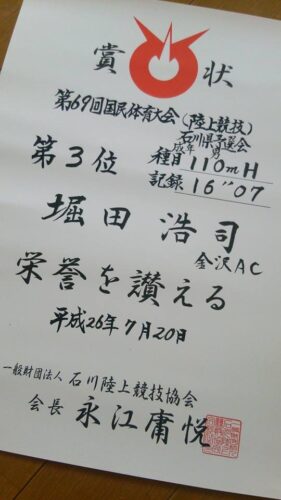 賞状
第69回国民体育大会(陸上競技)
石川県予選会
第3位
成年男
種目 110mH
記録 16"07
堀田 浩司
金沢AC
栄誉を讃える
平成26年7月20日
一般財団法人 石川陸上競技協会
会長 永江庸悦